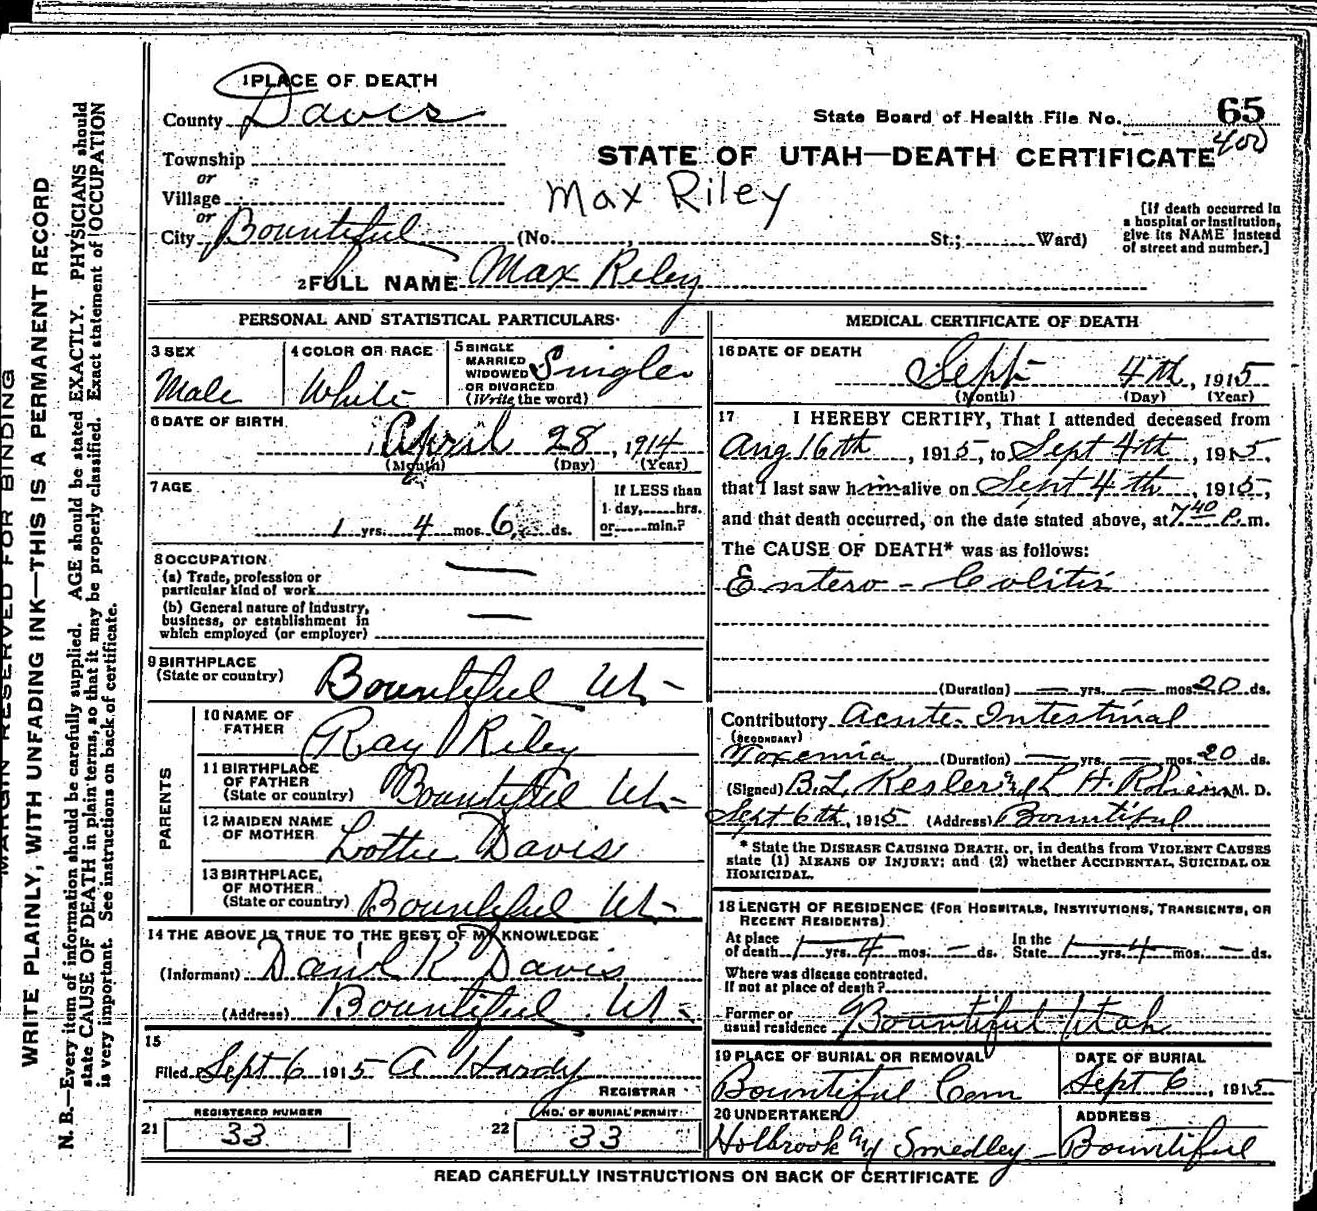 1 PLACE OF DEATH
County Davis
State Board of Health File No. 65
400
Township
or
STATE OF UTAH—DEATH CERTIFICATE
Village
Max Riley
or
City Bountiful (No. , St.; Ward)
[If death occurred in
a hospital or institution,
give its NAME instead
of street and number.]
2 FULL NAME Max Riley
PERSONAL AND STATISTICAL PARTICULARS
3 SEX
Male
4 COLOR OR RACE
White
5 SINGLE
MARRIED
WIDOWED
OR DIVORCED
(Write the word)
Single
6 DATE OF BIRTH
April 28, 1914
(Month) (Day) (Year)
7 AGE
1 yrs. 4 mos. 6 ds.
If LESS than
1 day, hrs.
or min.?
8 OCCUPATION
(a) Trade, profession or
particular kind of work —
(b) General nature of industry,
business, or establishment in
which employed (or employer) —
9 BIRTHPLACE
(State or country) Bountiful Ut-
PARENTS
10 NAME OF
FATHER Ray Riley
11 BIRTHPLACE
OF FATHER
(State or country) Bountiful Ut-
12 MAIDEN NAME
OF MOTHER Lottie Davis
13 BIRTHPLACE,
OF MOTHER
(State or country) Bountiful Ut-
14 THE ABOVE IS TRUE TO THE BEST OF MY KNOWLEDGE
(Informant) David K Davis
(Address) Bountiful Ut-
15
Filed Sept 6 1915 A Hardy
REGISTRAR
REGISTERED NUMBER
21 33
NO. OF BURIAL PERMIT
22 33
MEDICAL CERTIFICATE OF DEATH
16 DATE OF DEATH
Sept 4th, 1915
(Month) (Day) (Year)
17 I HEREBY CERTIFY, That I attended deceased from
Aug 16th, 1915, to Sept 4th, 1915,
that I last saw him alive on Sept 4th, 1915,
and that death occurred, on the date stated above, at 7 40 P. m.
The CAUSE OF DEATH* was as follows:
Entero-Colitis
(Duration) — yrs. — mos. 20 ds.
Contributory Acute Intestinal
(SECONDARY)
Toxemia (Duration) — yrs. — mos. 20 ds.
(Signed) B. L. Kesler M. D.
Sept 6th, 1915 (Address) Bountiful
* State the DISEASE CAUSING DEATH, or, in deaths from VIOLENT CAUSES
state (1) MEANS OF INJURY; and (2) whether ACCIDENTAL, SUICIDAL OR
HOMICIDAL.
18 LENGTH OF RESIDENCE (FOR HOSPITALS, INSTITUTIONS, TRANSIENTS, OR
RECENT RESIDENTS)
At place
of death 1 yrs. 4 mos. — ds. In the
State 1 yrs. 4 mos. — ds.
Where was disease contracted.
If not at place of death?
Former or
usual residence Bountiful Utah
19 PLACE OF BURIAL OR REMOVAL
Bountiful Cem
DATE OF BURIAL
Sept 6, 1915
20 UNDERTAKER
Holbrook and Smedley
ADDRESS
Bountiful
READ CAREFULLY INSTRUCTIONS ON BACK OF CERTIFICATE
MARGIN RESERVED FOR BINDING
WRITE PLAINLY, WITH UNFADING INK—THIS IS A PERMANENT RECORD
N. B.—Every item of information should be carefully supplied. AGE should be stated EXACTLY. PHYSICIANS should
state CAUSE OF DEATH in plain terms, so that it may be properly classified. Exact statement of OCCUPATION
is very important. See instructions on back of certificate.